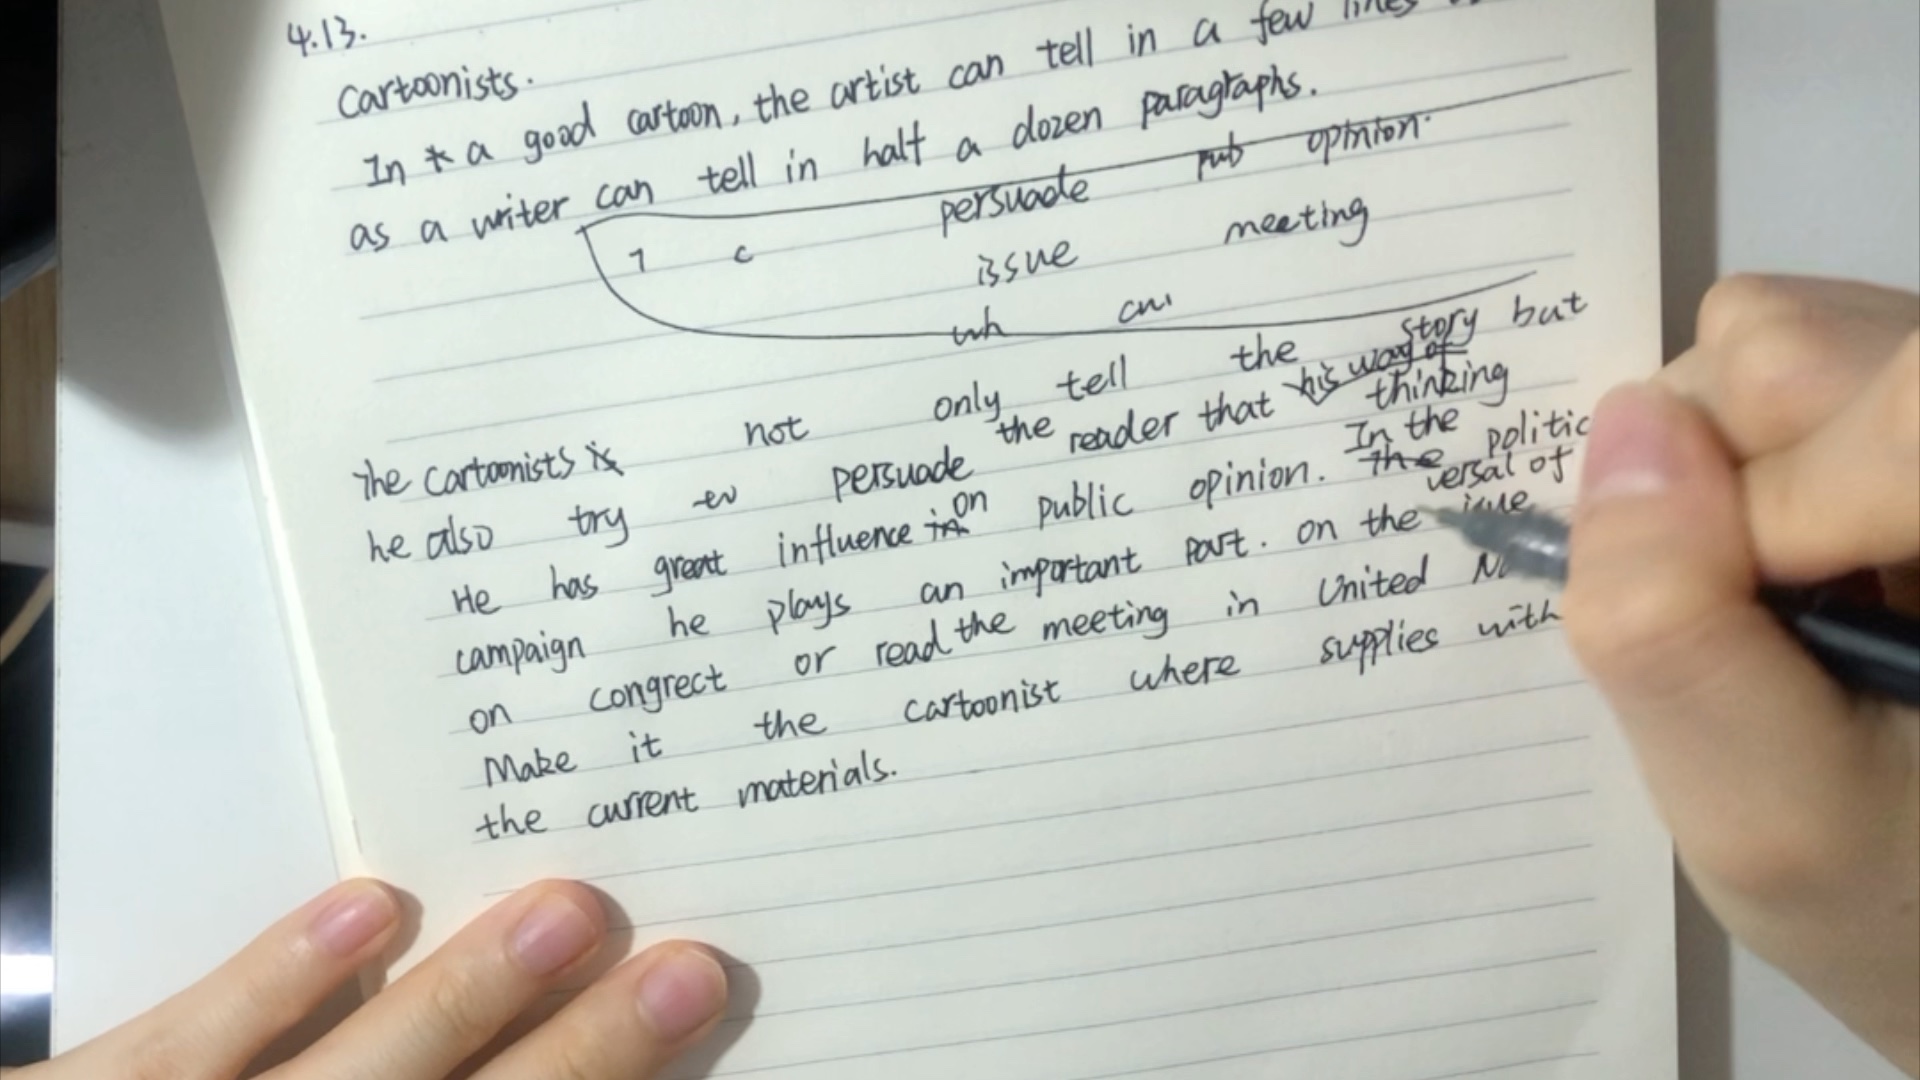 4.13.
Cartoonists.
In a good cartoon, the artist can tell in a few lines
as a writer can tell in half a dozen paragraphs.
persuade pub opinion.
7 c issue meeting
wh
The cartoonists is not only tell the story but
he also try persuade the reader that his way of thinking
He has great influence in on public opinion. In the The politic
campaign he plays an important part. on the versal of issue
on congrect or read the meeting in United
Make it the cartoonist where supplies with
the current materials.